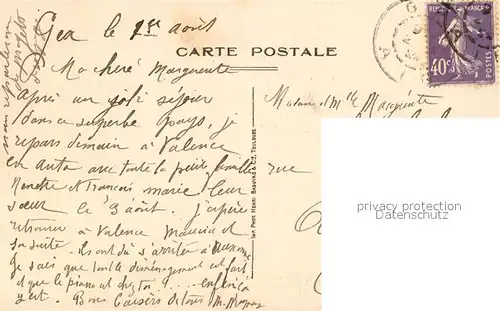 Gex le 1er août
CARTE POSTALE
REPUBLIQUE FRANÇAISE
40c
POSTES
Ma chère Marguerite
après un joli séjour
dans ce superbe pays, je
repars demain à Valence
en auto avec toute la petite famille
Nenette et François marie leur
sœur le 3 août. J'espère
retrouver à Valence Maurice et
sa suite. ils ont dû s'arrêter à
Je sais que tout le déménagement est fait
et que le piano est chez toi .... enfin ça
y est. Bons baisers de tous M.
Madame et Mlle Marguerite
rue
Imp. Phot. Henri Basuyau & Cie, Toulouse
privacy protection
Datenschutz